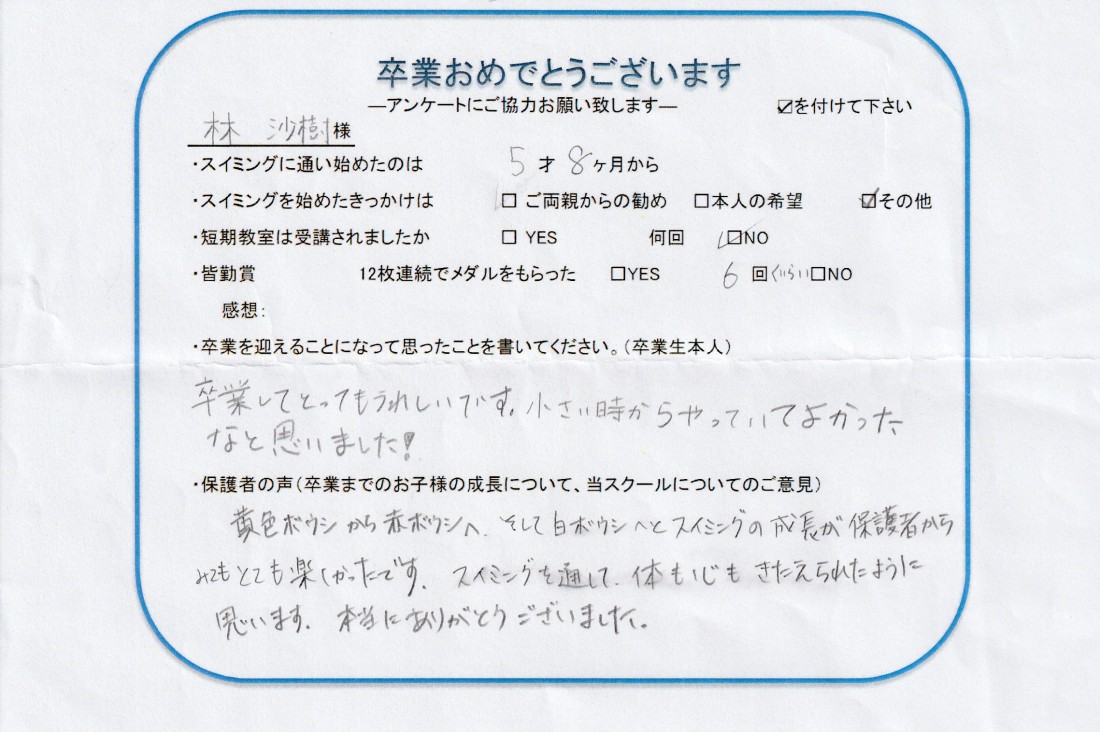 卒業おめでとうございます
―アンケートにご協力お願い致します― ☑を付けて下さい
林 沙樹様
・スイミングに通い始めたのは 5才8ヶ月から
・スイミングを始めたきっかけは □ ご両親からの勧め □本人の希望 ☑その他
・短期教室は受講されましたか □ YES 何回 ☑NO
・皆勤賞 12枚連続でメダルをもらった □YES 6回ぐらい□NO
感想：
・卒業を迎えることになって思ったことを書いてください。（卒業生本人）
卒業してとってもうれしいです。小さい時からやっていてよかった
なと思いました!
・保護者の声（卒業までのお子様の成長について、当スクールについてのご意見）
黄色ボウシから赤ボウシへ、そして白ボウシへとスイミングの成長が保護者から
みてもとても楽しかったです。スイミングを通して、体も心もきたえられたように
思います。本当にありがとうございました。